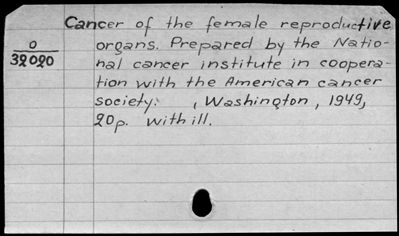 Cancer of the female reproductive
0
32020
organs. Prepared by the Natio-
nal cancer institute in coopera-
tion with the American cancer
society. , Washington, 1949,
20p. with ill.